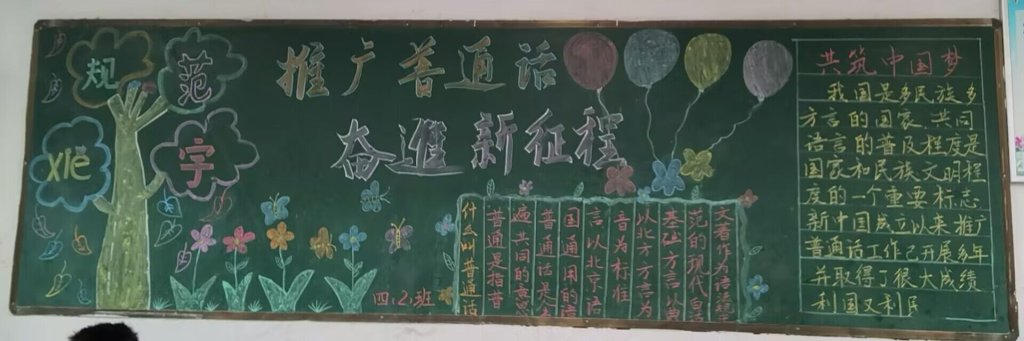 规
范
xiě
字
推广普通话
奋進新征程
什么叫普通话
普通是指普
遍共同的意思
普通话是全
国通用的语
言以北京语
音为标准
以北方方言为
基础方言以典
范的现代白
文著作为语法
四.2.班
共筑中国梦
我国是多民族多
方言的国家.共同
语言的普及程度是
国家和民族文明程
度的一个重要标志
新中国成立以来推广
普通话工作已开展多年
并取得了很大成绩
利国又利民